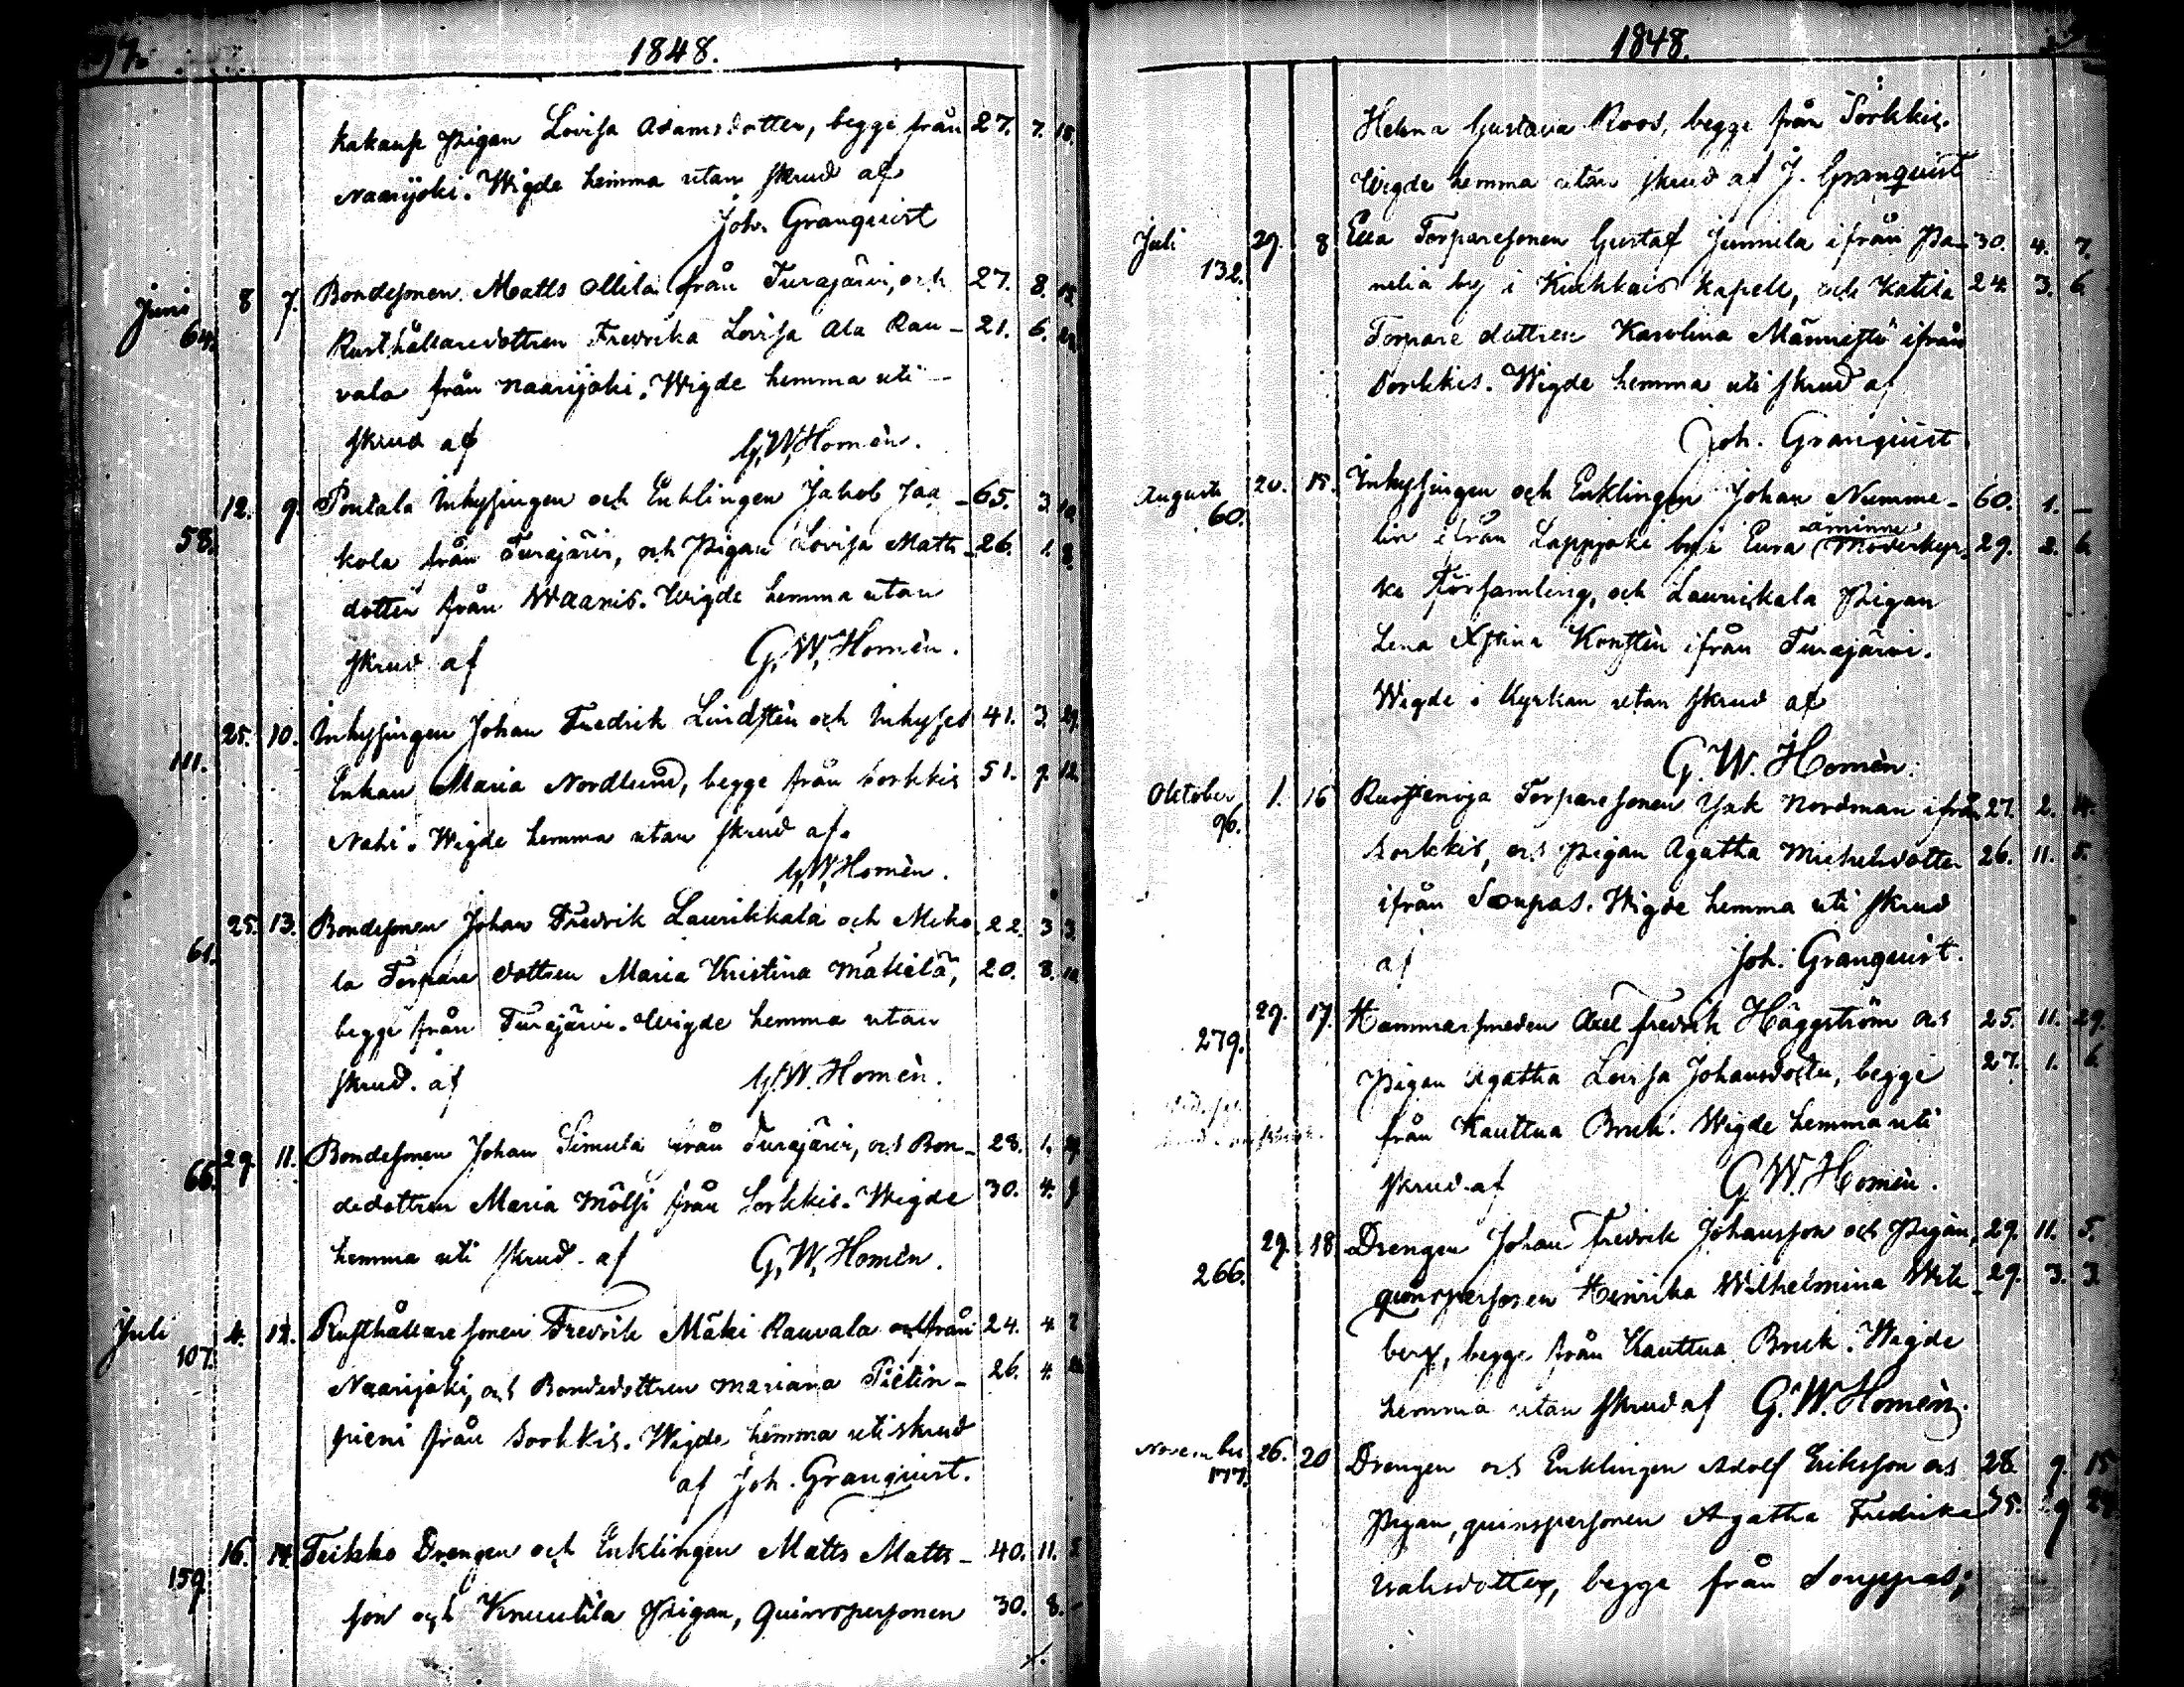 1848.
kakaus Pigan Lovisa Adamsdotter, begge från 27. 7. 18.
Naarijoki. Wigde hemma utan skrud af
Joh. Granquist
Juni 8 7. Bondesonen Matts Ollila från Turajärvi, och 27. 8.
64. Rusthållaredottren Fredrika Lovisa Ala Rau- 21. 6.
vala från Naarijoki. Wigde hemma uti
skrud af G. W. Homèn.
12. 9. Pontala Inhysingen och Enklingen Jakob Jaa- 65. 3. 10
58. kola från Turajärvi, och Pigan Lovisa Matts- 26. 1. 8.
dotter från Waanis. Wigde hemma utan
skrud af G. W. Homèn.
25. 10. Inhysingen Johan Fredrik Lindstèn och Inhyses 41. 3. 29
111. Enkan Maria Nordlund, begge från Sorkkis 51. 9. 12
Nahi. Wigde hemma utan skrud af
G. W. Homèn.
25. 13. Bondesonen Johan Fredrik Laurikkala och Miko 22. 3 3
61. la Torpare dottren Maria Kristina Mäkilä, 20. 8. 10
begge från Turajärvi. Wigde hemma utan
skrud af G. W. Homèn.
29. 11. Bondesonen Johan Simula från Turajärvi, och Bon- 28. 1.
66. dedottren Maria Mölsi från Sorkkis. Wigde 30. 4.
hemma uti skrud af G. W. Homèn.
Juli 4. 12. Rusthållaresonen Fredrik Mäki Rauvala från 24. 4
107. Naarijoki, och Bondedottren Mariana Pietin- 26. 4.
pieni från Sorkkis. Wigde hemma uti skrud
af Joh. Granquist.
16. 14. Teikko Drengen och Enklingen Matts Matts- 40. 11.
159. son och Knuutila Pigan, Quinspersonen 30. 8.
1848.
Helena Gustava Roos, begge från Sorkkis.
Wigde hemma utan skrud af J. Granquist
Juli 29. 8 Eua Torparesonen Gustaf Junnila ifrån Pa- 30. 4. 7.
132. nelia by i Kiukkais Kapell, och Katila 24. 3. 6
Torpare dottren Karolina Männistö ifrån
Sorkkis. Wigde hemma uti skrud af
Joh. Granquist.
Augusti 20. 15. Inhysingen och Enklingen Johan Numme- 60. 1. —
60. lin ifrån Lappjoki by i Eura åminne Moderkyr- 29. 2. 6
ko Församling, och Laurikkala Pigan
Lena Xstina Konstèn ifrån Turajärvi.
Wigde i Kyrkan utan skrud af
G. W. Homèn.
Oktober 1. 16 Torparesonen Isak Nordman ifrån 27. 2. 4.
96. Sorkkis, och Pigan Agatha Michelsdotter 26. 11. 5.
ifrån Soupas. Wigde hemma uti skrud
af Joh. Granquist.
29. 17. Hammarsmeden Axel Fredrik Häggström och 25. 11. 29.
279. Pigan Agatha Lovisa Johansdotter, begge 27. 1. 6
från Kauttua Bruk. Wigde hemma uti
skrud af G. W. Homèn.
29. 18 Drengen Johan Fredrik Johansson och Pigan, 29. 11. 5.
266. quinspersonen Henrika Wilhelmina Wik- 29. 3. 3
berg, begge från Kauttua Bruk. Wigde
hemma utan skrud af G. W. Homèn.
November 26. 20 Drengen och Enklingen Adolf Eriksson och 28 9. 15
177. Pigan, quinspersonen Agatha Fredrika 35. 9
Isaksdotter, begge från Souppas,